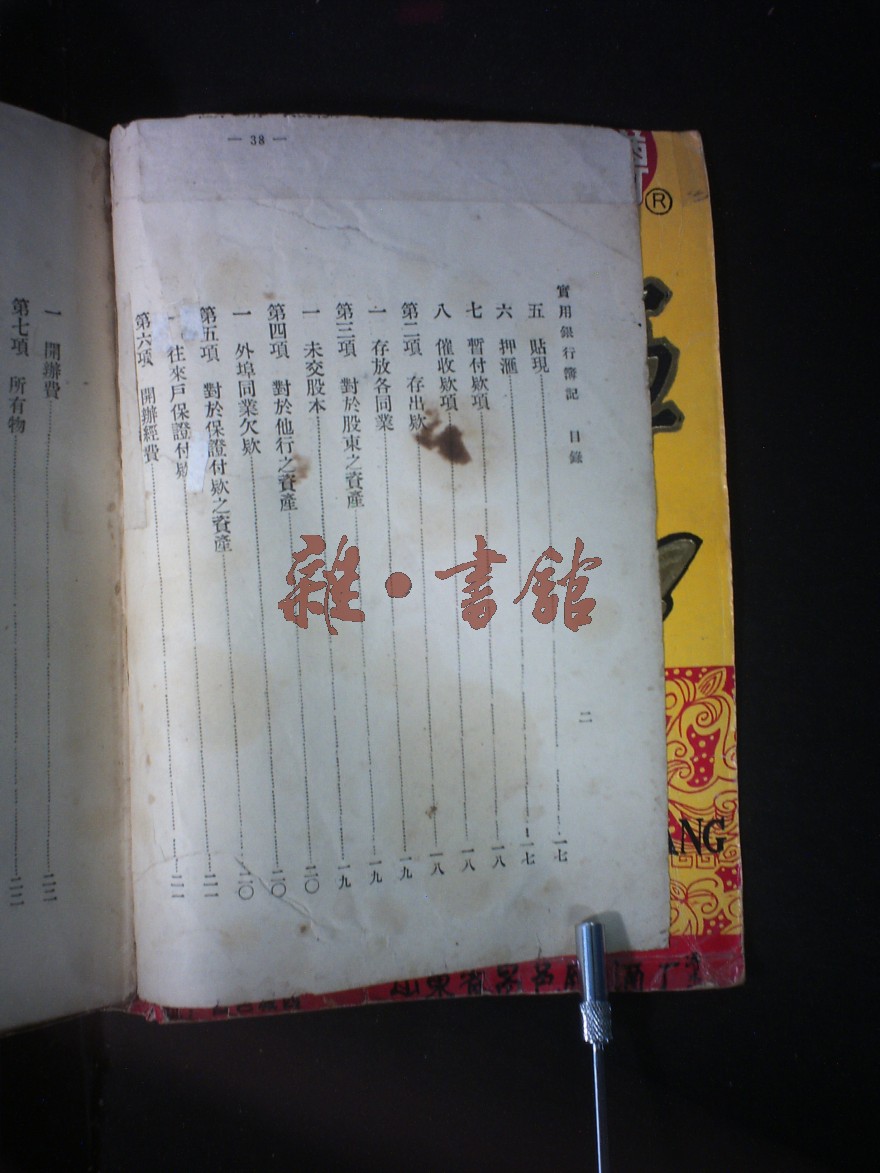 — 38 —
實用銀行簿記 目錄
二
五 貼現 一七
六 押滙 一七
七 暫付欵項 一八
八 催收欵項 一八
第二項 存出欵 一九
一 存放各同業 一九
第三項 對於股東之資產 一九
一 未交股本 二〇
第四項 對於他行之資產 二〇
一 外埠同業欠欵 二〇
第五項 對於保證付欵之資產 二一
一 往來戶保證付欵 二一
第六項 開辦經費
一 開辦費 二二
第七項 所有物 二二
雜·書館
®
ANG